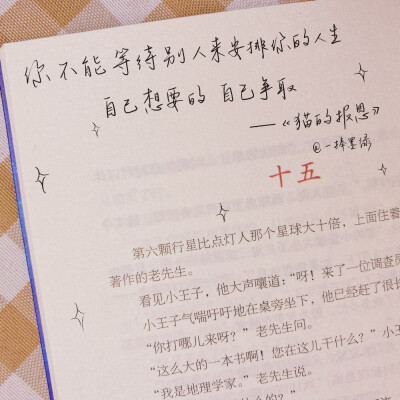 你不能等待别人来安排你的人生
自己想要的 自己争取
——《猫的报恩》
@一捧墨绿
十五
第六颗行星比点灯人那个星球大十倍，上面住着
著作的老先生。
看见小王子，他大声嚷道：“呀！来了一位调查员
小王子气喘吁吁地在桌旁坐下，他已经赶了很长
“你打哪儿来呀？”老先生问。
“这么大的一本书啊！您在这儿干什么？”小王
“我是地理学家。”老先生说。